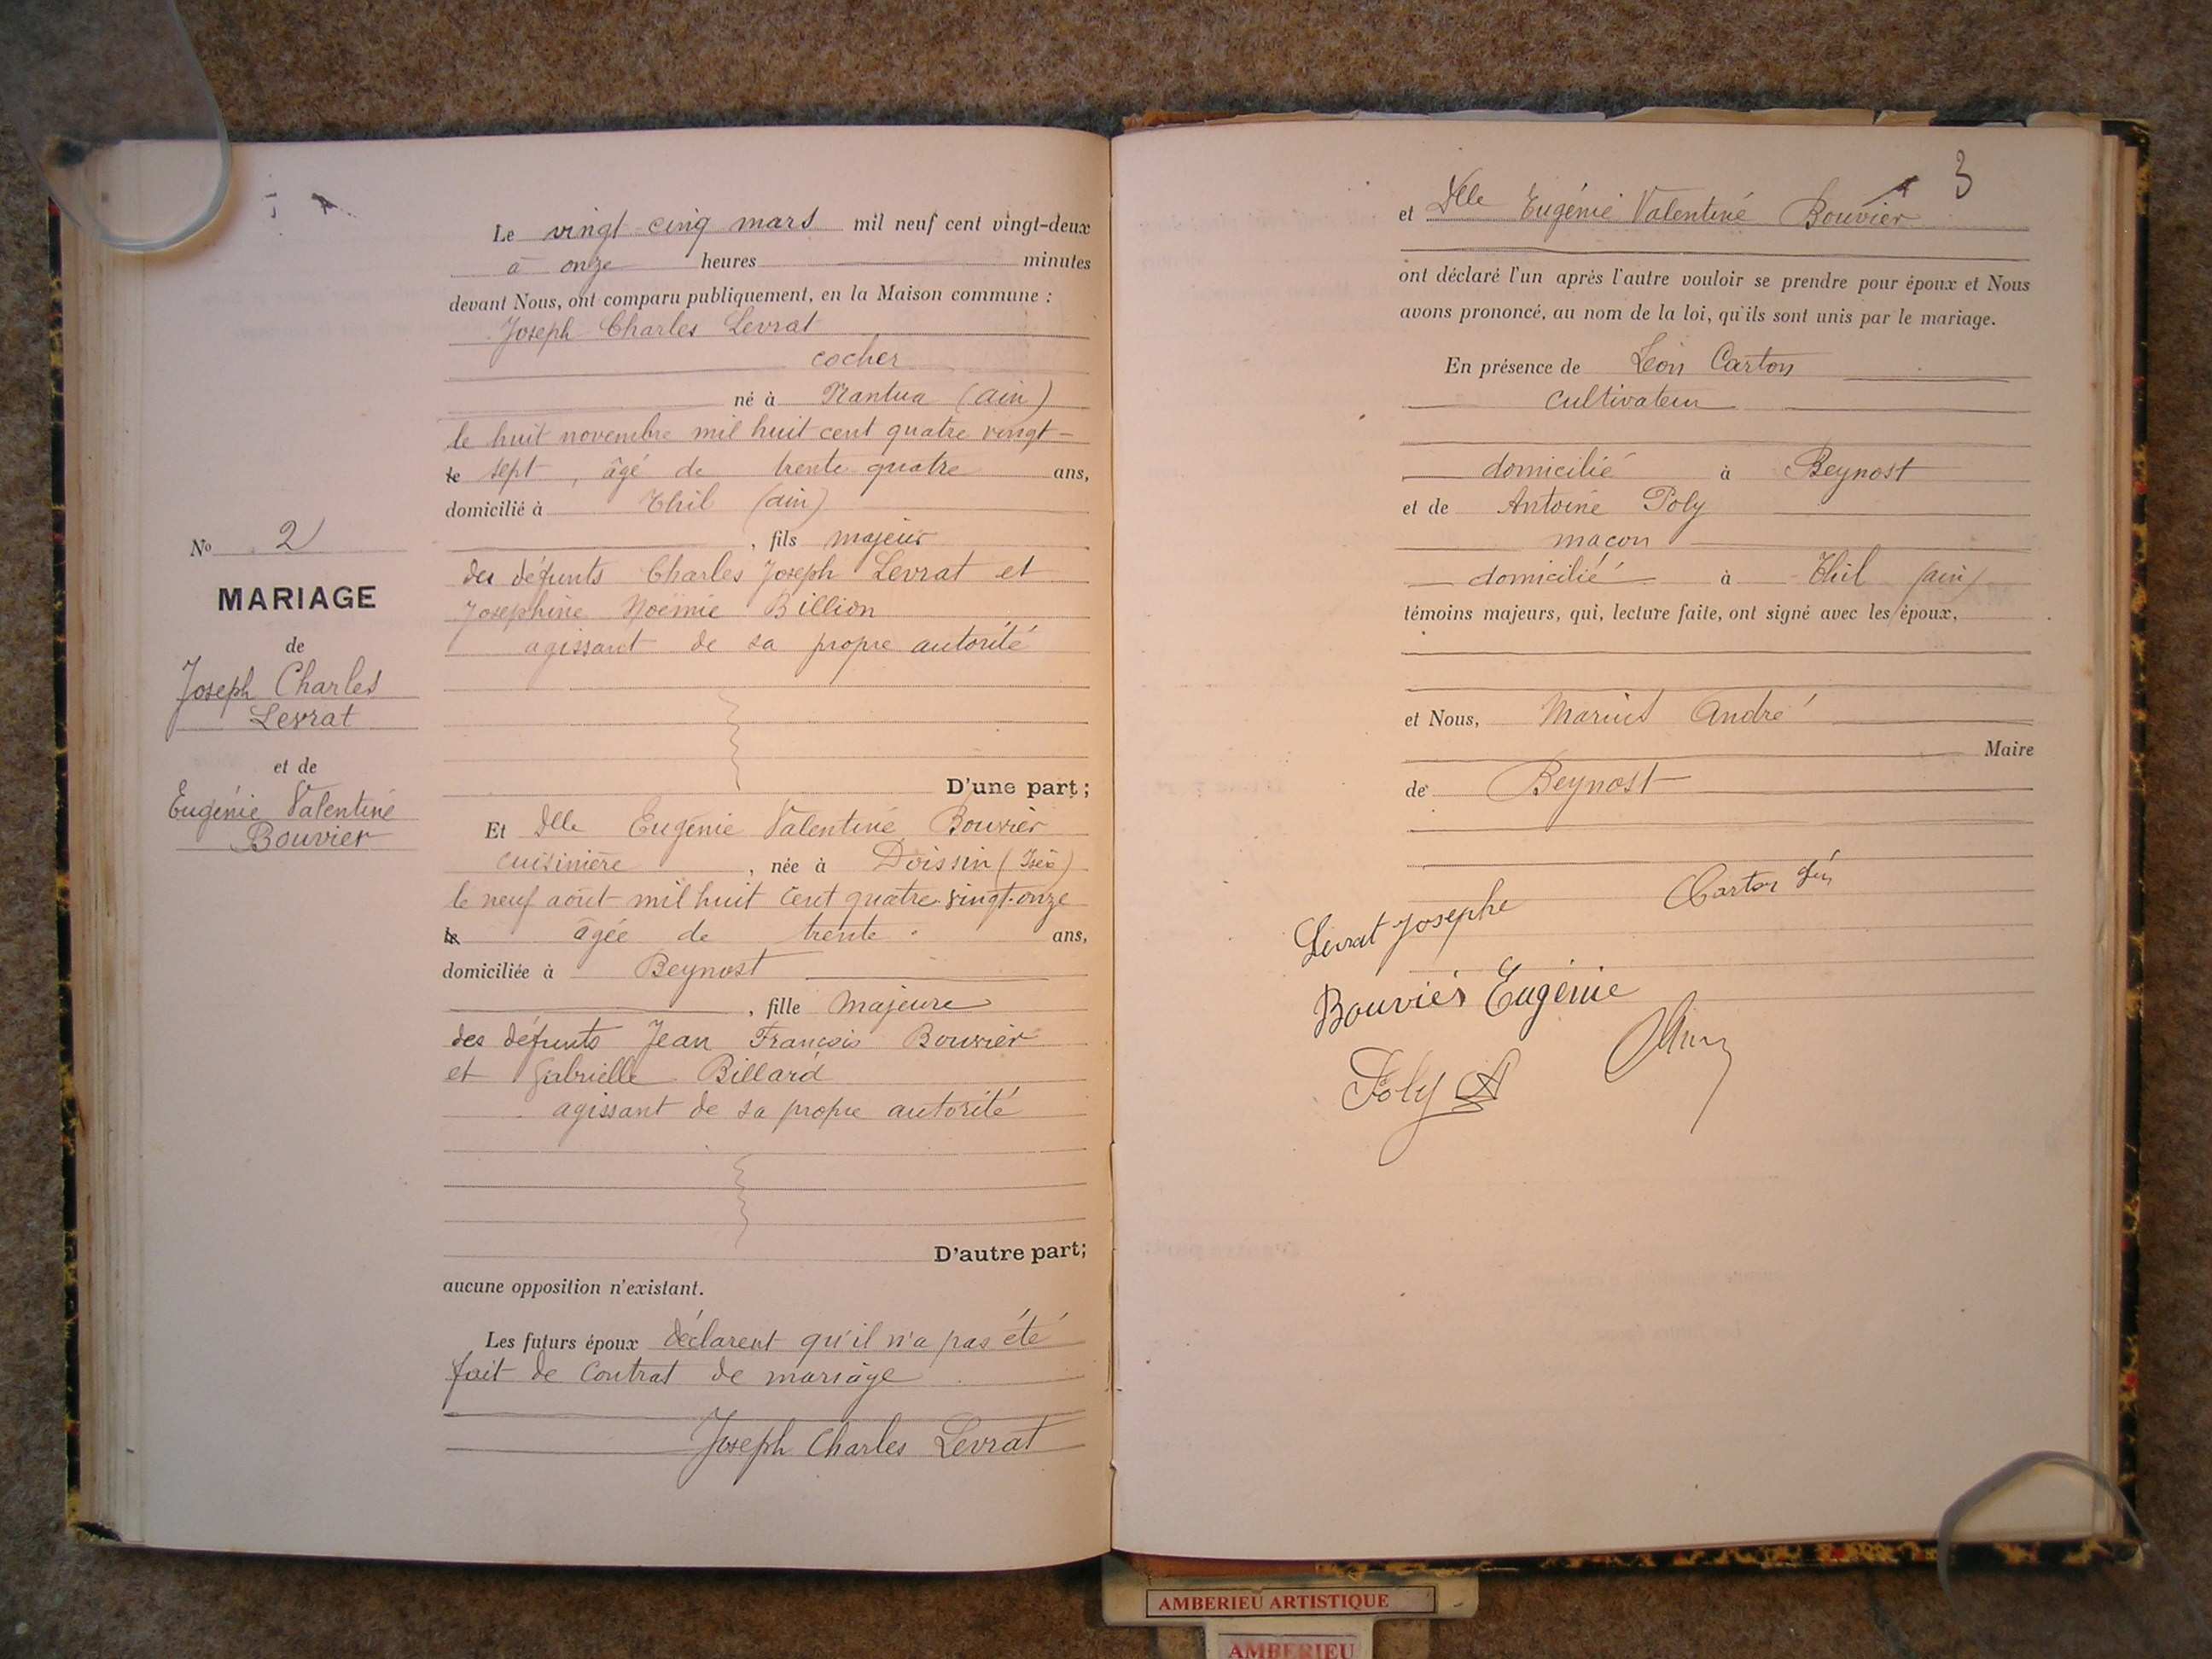 No 2
MARIAGE
de
Joseph Charles
Levrat
et de
Eugénie Valentine
Bouvier
Le vingt cinq mars mil neuf cent vingt-deux
à onze heures minutes
devant Nous, ont comparu publiquement, en la Maison commune :
Joseph Charles Levrat
cocher
né à Nantua (ain)
le huit novembre mil huit cent quatre vingt-
le sept, âgé de trente quatre ans,
domicilié à Thil (ain)
, fils majeur
des défunts Charles Joseph Levrat et
Josephine Noëmie Billion
agissant de sa propre autorité
D'une part;
Et Dlle Eugénie Valentine Bouvier
cuisinière, née à Doissin (Isère)
le neuf août mil huit cent quatre vingt-onze
le âgée de trente ans,
domiciliée à Beynost
, fille Majeure
des défunts Jean François Bouvier
et Gabrielle Billard
agissant de sa propre autorité
D'autre part;
aucune opposition n'existant.
Les futurs époux déclarent qu'il n'a pas été
fait de contrat de mariage
Joseph Charles Levrat
3
et Dlle Eugénie Valentine Bouvier
ont déclaré l'un après l'autre vouloir se prendre pour époux et Nous
avons prononcé, au nom de la loi, qu'ils sont unis par le mariage.
En présence de Léon Carton
cultivateur
domicilié à Beynost
et de Antoine Poly
maçon
domicilié à Thil (ain)
témoins majeurs, qui, lecture faite, ont signé avec les époux,
et Nous, Marius André
Maire
de Beynost
Carton
Levrat Josephe
Bouvier Eugénie
Poly A
AMBERIEU ARTISTIQUE
AMBERIEU